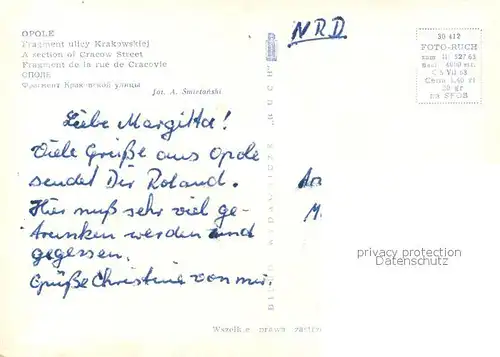 OPOLE
Fragment ulicy Krakowskiej
A section of Cracow Street
Fragment de la rue de Cracovie
ОПОЛЕ
Фрагмент Краковской улицы
fot. A. Śmietański
NRD
30 412
FOTO-RUCH
Cena 1,40 zł
20 gr
na SFOS
Liebe Margitta!
Viele Grüße aus Opole
sendet Dir Roland.
Hier muß sehr viel ge-
trunken werden und
gegessen.
Grüße Christine von mir.
privacy protection
Datenschutz